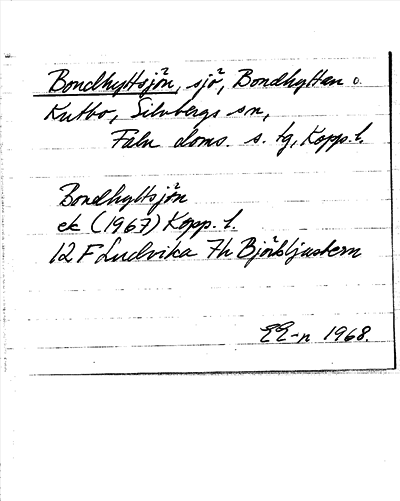 Bondhyttsjön, sjö, Bondhyttan o.
Kutbo, Silvbergs sn,
Falu doms. s. tg, Kopp. l.
Bondhyttsjön
ek (1967) Kopp. l.
12 F Ludvika 7h Björbljustern
EE-n 1968.